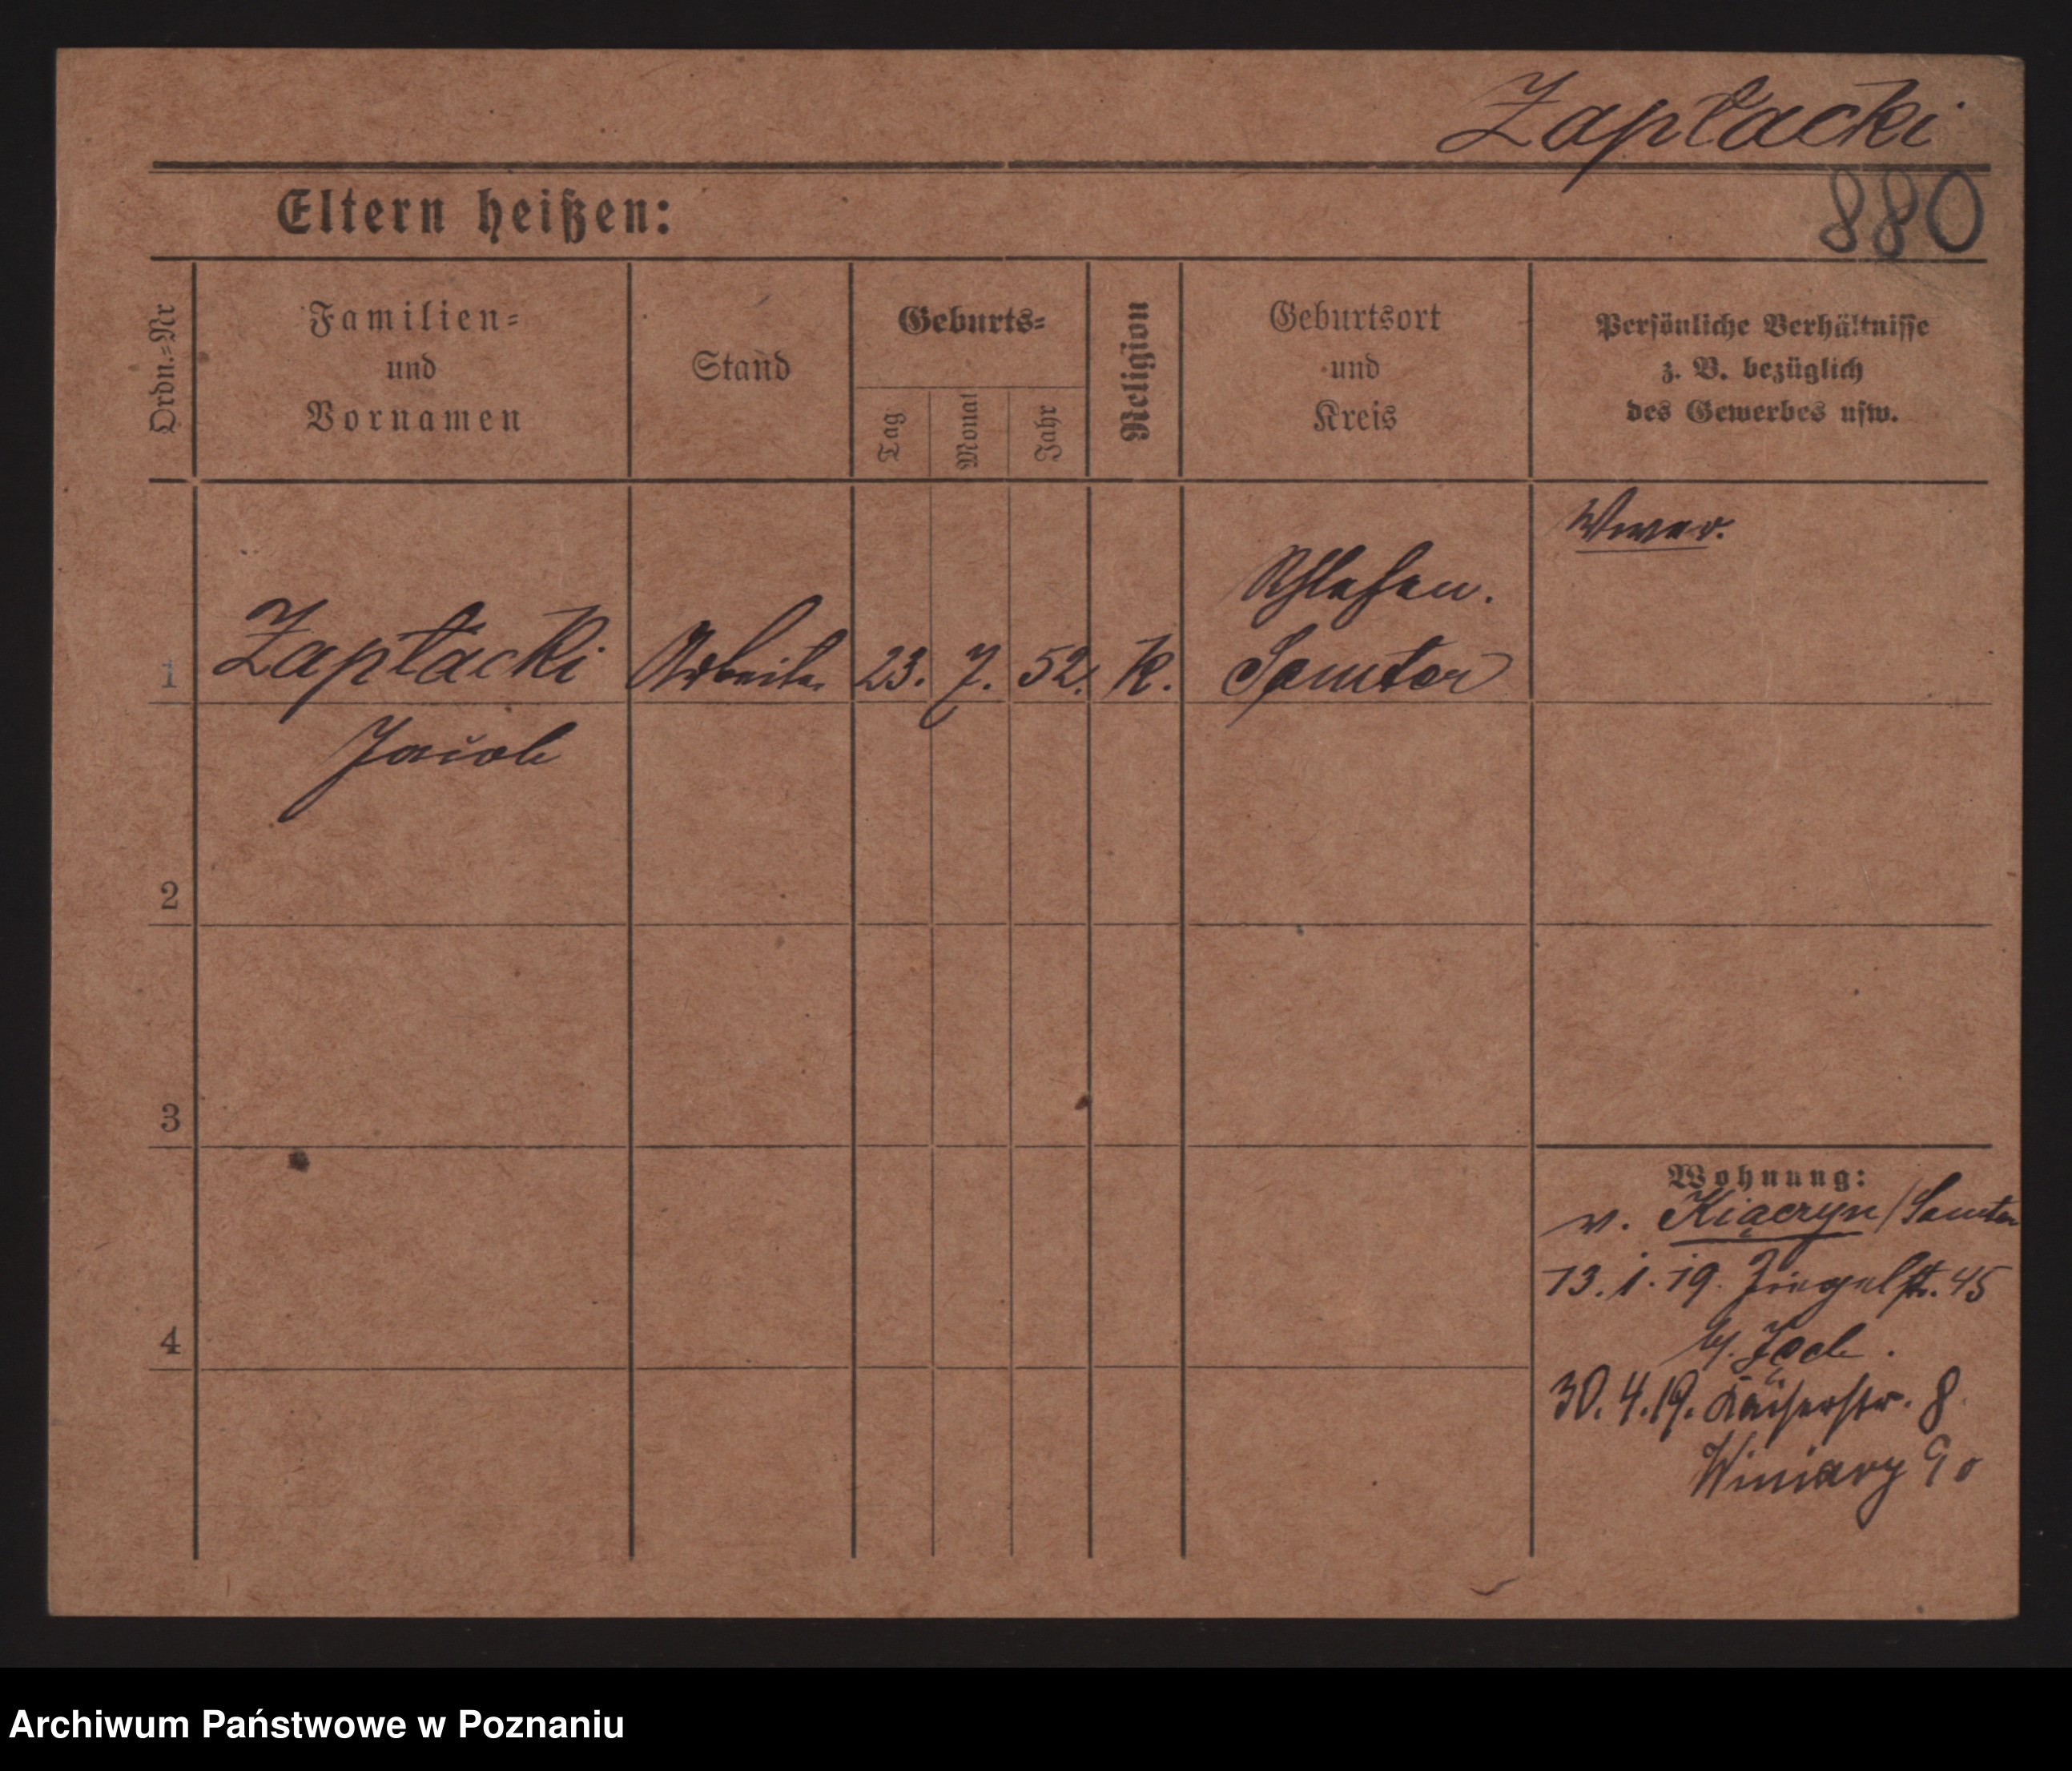 Zapłacki
880
Eltern heißen:
Ordn.=Nr
Familien=
und
Vornamen
Stand
Geburts=
Tag
Monat
Jahr
Religion
Geburtsort
und
Kreis
Persönliche Verhältnisse
z. B. bezüglich
des Gewerbes usw.
Wwer.
1
Zapłacki
Arbeiter
23.
7.
52.
K.
Samter
2
3
4
Wohnung:
v. Kiączyn/Samter
13. 1. 19. Ziegelstr. 45
b/.
30. 4. 19. Kaiserstr. 8
Winiary
Archiwum Państwowe w Poznaniu